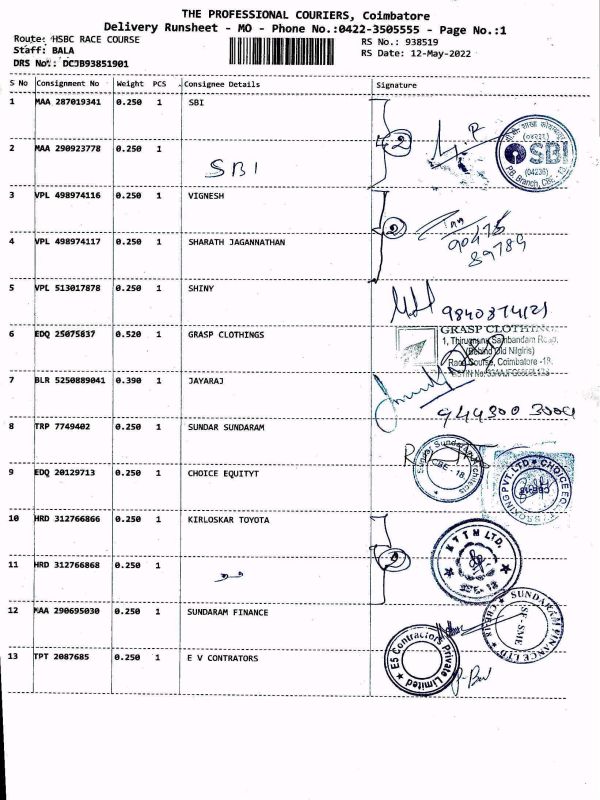 THE PROFESSIONAL COURIERS, Coimbatore
Delivery Runsheet - MO - Phone No.:0422-3505555 - Page No.:1
Route: HSBC RACE COURSE RS No.: 938519
Staff: BALA RS Date: 12-May-2022
DRS No.: DCJB93851901
S No Consignment No Weight PCS Consignee Details Signature
1 MAA 287019341 0.250 1 SBI
2 MAA 290923778 0.250 1
SBI
2
SBI
(04236)
3 VPL 498974116 0.250 1 VIGNESH
4 VPL 498974117 0.250 1 SHARATH JAGANNATHAN
2
90475
89789
5 VPL 513017878 0.250 1 SHINY
9840374121
6 EDQ 25075837 0.520 1 GRASP CLOTHINGS
GRASP CLOTHING
1, Thirugnana Sambandam Road,
(Behind Old Nilgiris)
Race Course, Coimbatore -18.
7 BLR 5250889041 0.390 1 JAYARAJ
944300 3004
8 TRP 7749402 0.250 1 SUNDAR SUNDARAM
CBE - 18
9 EDQ 20129713 0.250 1 CHOICE EQUITYT
10 HRD 312766866 0.250 1 KIRLOSKAR TOYOTA
11 HRD 312766868 0.250 1
2
KTTM LTD.
12 MAA 290695030 0.250 1 SUNDARAM FINANCE
SUNDARAM FINANCE LTD
SF-SME
13 TPT 2087685 0.250 1 E V CONTRATORS
E5 Contractors Private Limited